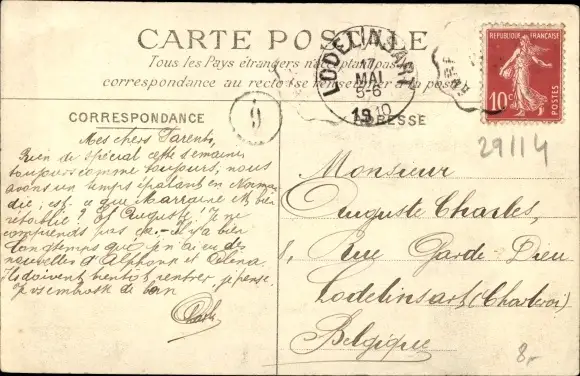 CARTE POSTALE
Tous les Pays étrangers n'acceptant pas
correspondance au recto se renseigner à la poste
LODELINSART
17
MAI
5-6
1910
REPUBLIQUE FRANÇAISE
10c
POSTES
9
CORRESPONDANCE
ADRESSE
29114
Mes chers Parents,
Rien de spécial cette semaine
toujours comme toujours, nous
avons un temps épatant en Norman
die; est-ce que Marraine est bien
rétablie? Et Auguste! Je ne
comprends pas ça. — Il y a bien
longtemps que je n'ai eu des
nouvelles d'Alphonse et Elena
ils doivent bientôt rentrer, je pense.
Je vs embrasse de loin
Charles
Monsieur
Auguste Charles,
8, Rue Garde-Dieu
Lodelinsart (Charleroi)
Belgique
8.-